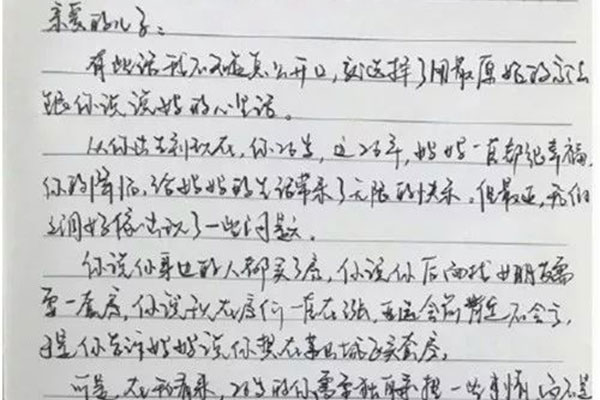 亲爱的儿子：
有些话我不知怎么开口，就选择了用最原始的方法
跟你说说妈的心里话。
从你出生到现在，你26岁，这26年，妈妈一直都很幸福，
你的降临，给妈妈的生活带来了无限的快乐。但最近，我们
之间好像出现了一些问题。
你说你身边的人都买了房，你说你后面找女朋友需
要一套房，你说现在房价一直在涨，
于是你告诉妈妈说你想在 买套房。
可是，在我看来，26岁的你需要独自承担一些事情，而不是